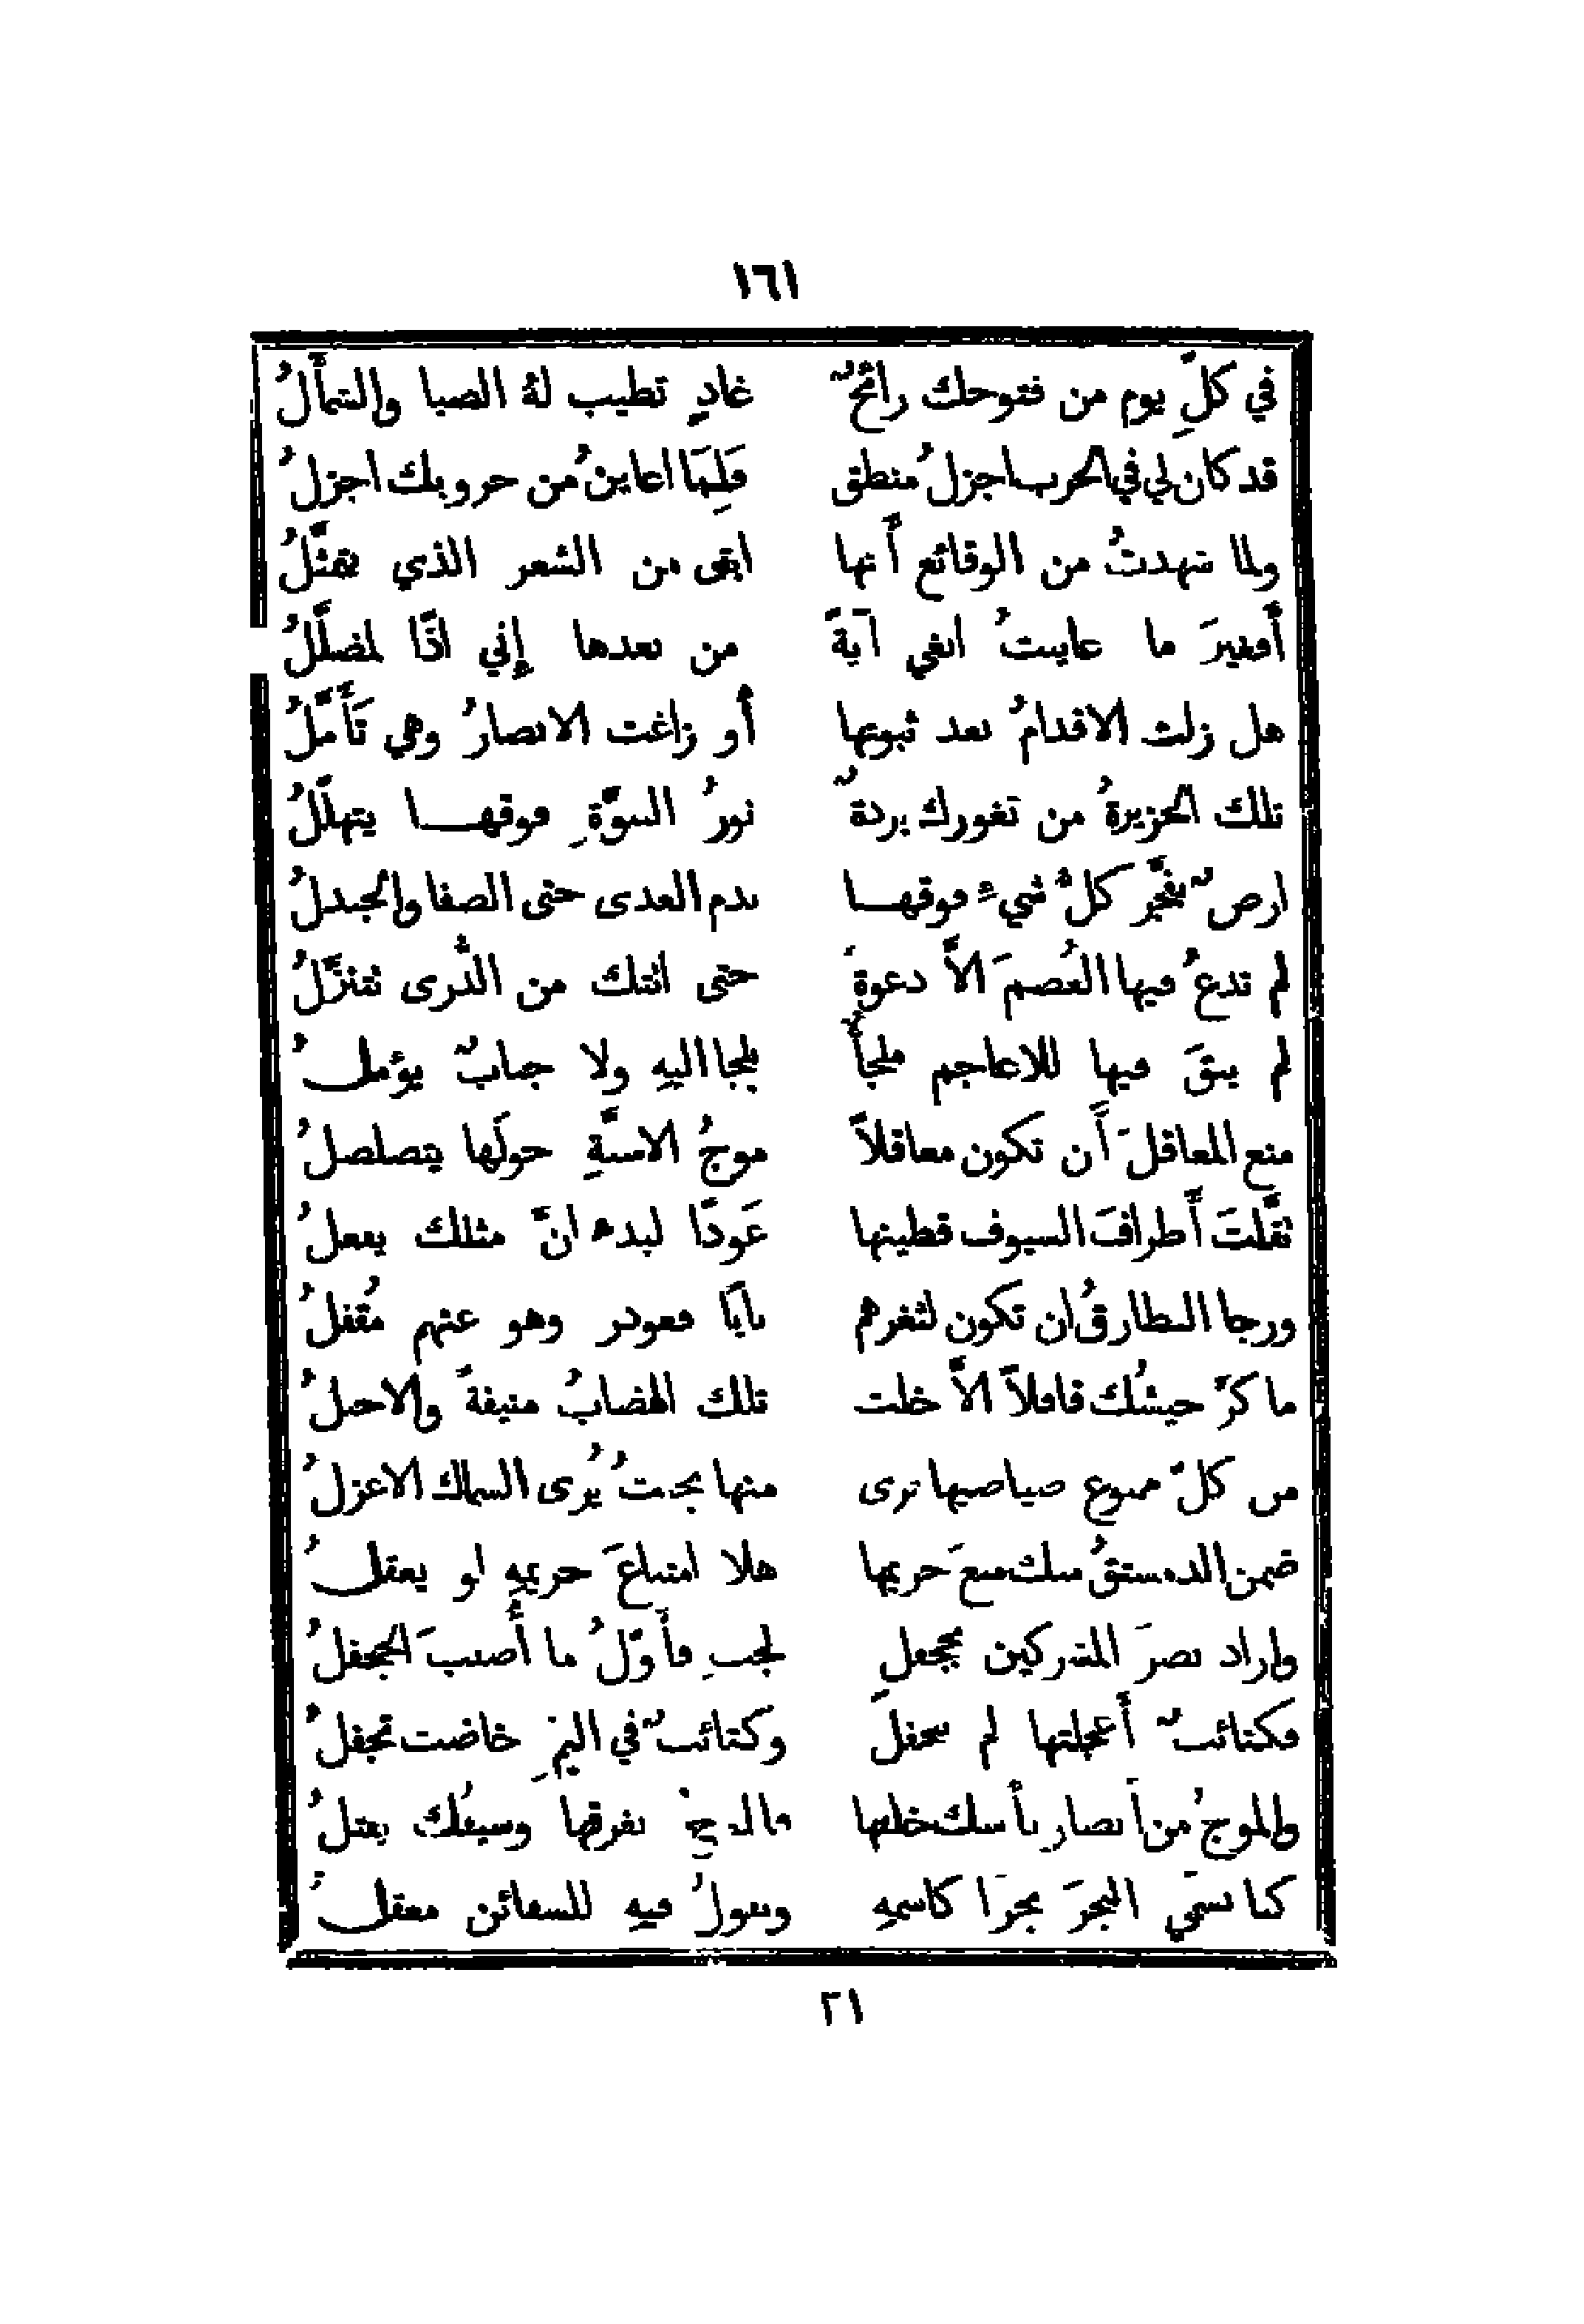 ١٦١
في كلِّ يوم من فتوحك رائحٌ غادٍ تطيب لهُ الصبا والشمأَلُ
قد كان لي في الحرب اجزلُ منطق فَلِمَا اعاينُ من حروبك اجزلُ
ولما شهدتُ من الوقائع أَنها ابقى من الشعر الذي يتمثَّلُ
أَفغيرَ ما عاينتُ ابغي آيةً من بعدها إني اذًا لمضلَّلُ
هل زلت الاقدامُ بعد ثبوتها أو زاغت الابصارُ وهي تَأَمَّلُ
تلك الجزيرةُ من ثغورك بردةٌ نورُ النبوَّةِ فوقها يتهلَّلُ
ارضٌ تفجَّر كلُّ شيءٍ فوقها بدم العدى حتى الصفا والجندلُ
لم تدعُ فيها العُصمَ الاَّ دعوةً حتى اتتك من الذُّرى تتنزَّلُ
لم يبقَ فيها للاعاجم ملجأٌ يلجا اليهِ ولا جنابٌ يؤملُ
منع المعاقلَ أَن تكون معاقلاً موجُ الاسنَّةِ حولَها يتصلصلُ
نفَّلتَ أَطرافَ السيوف قطينها عَودًا لبدء انَّ مثلك يفعلُ
ورجا البطارقُ ان تكون لثغرهم بابًا فغودر وهو عنهم مُقفلُ
ما كرَّ جيشُك قافلاً الاَّ خلت تلك الهضابُ منيفةً والاجبلُ
من كلّ ممنوع صياصيها ترى منها بحيثُ يُرى السماك الاعزلُ
ضمن الدمستقُ منك منعَ حريمها هلا امتناعَ حريمهِ لو يعقلُ
واراد نصرَ المشركين بجحفلٍ لجبٍ فأَوَّلُ ما أُصيبَ الجحفلُ
فكتائبٌ أَعجلتها لم تجفلَ وكتائبٌ في اليمِّ خاضت تجفلُ
والموجُ من أَنصار بأسك خلفها فالموجُ يغرقها وسيفُك يقتلُ
كنا نسمّي البحرَ بحرًا كاسمهِ ونقولُ فيهِ للسفائن معقلُ
٢١